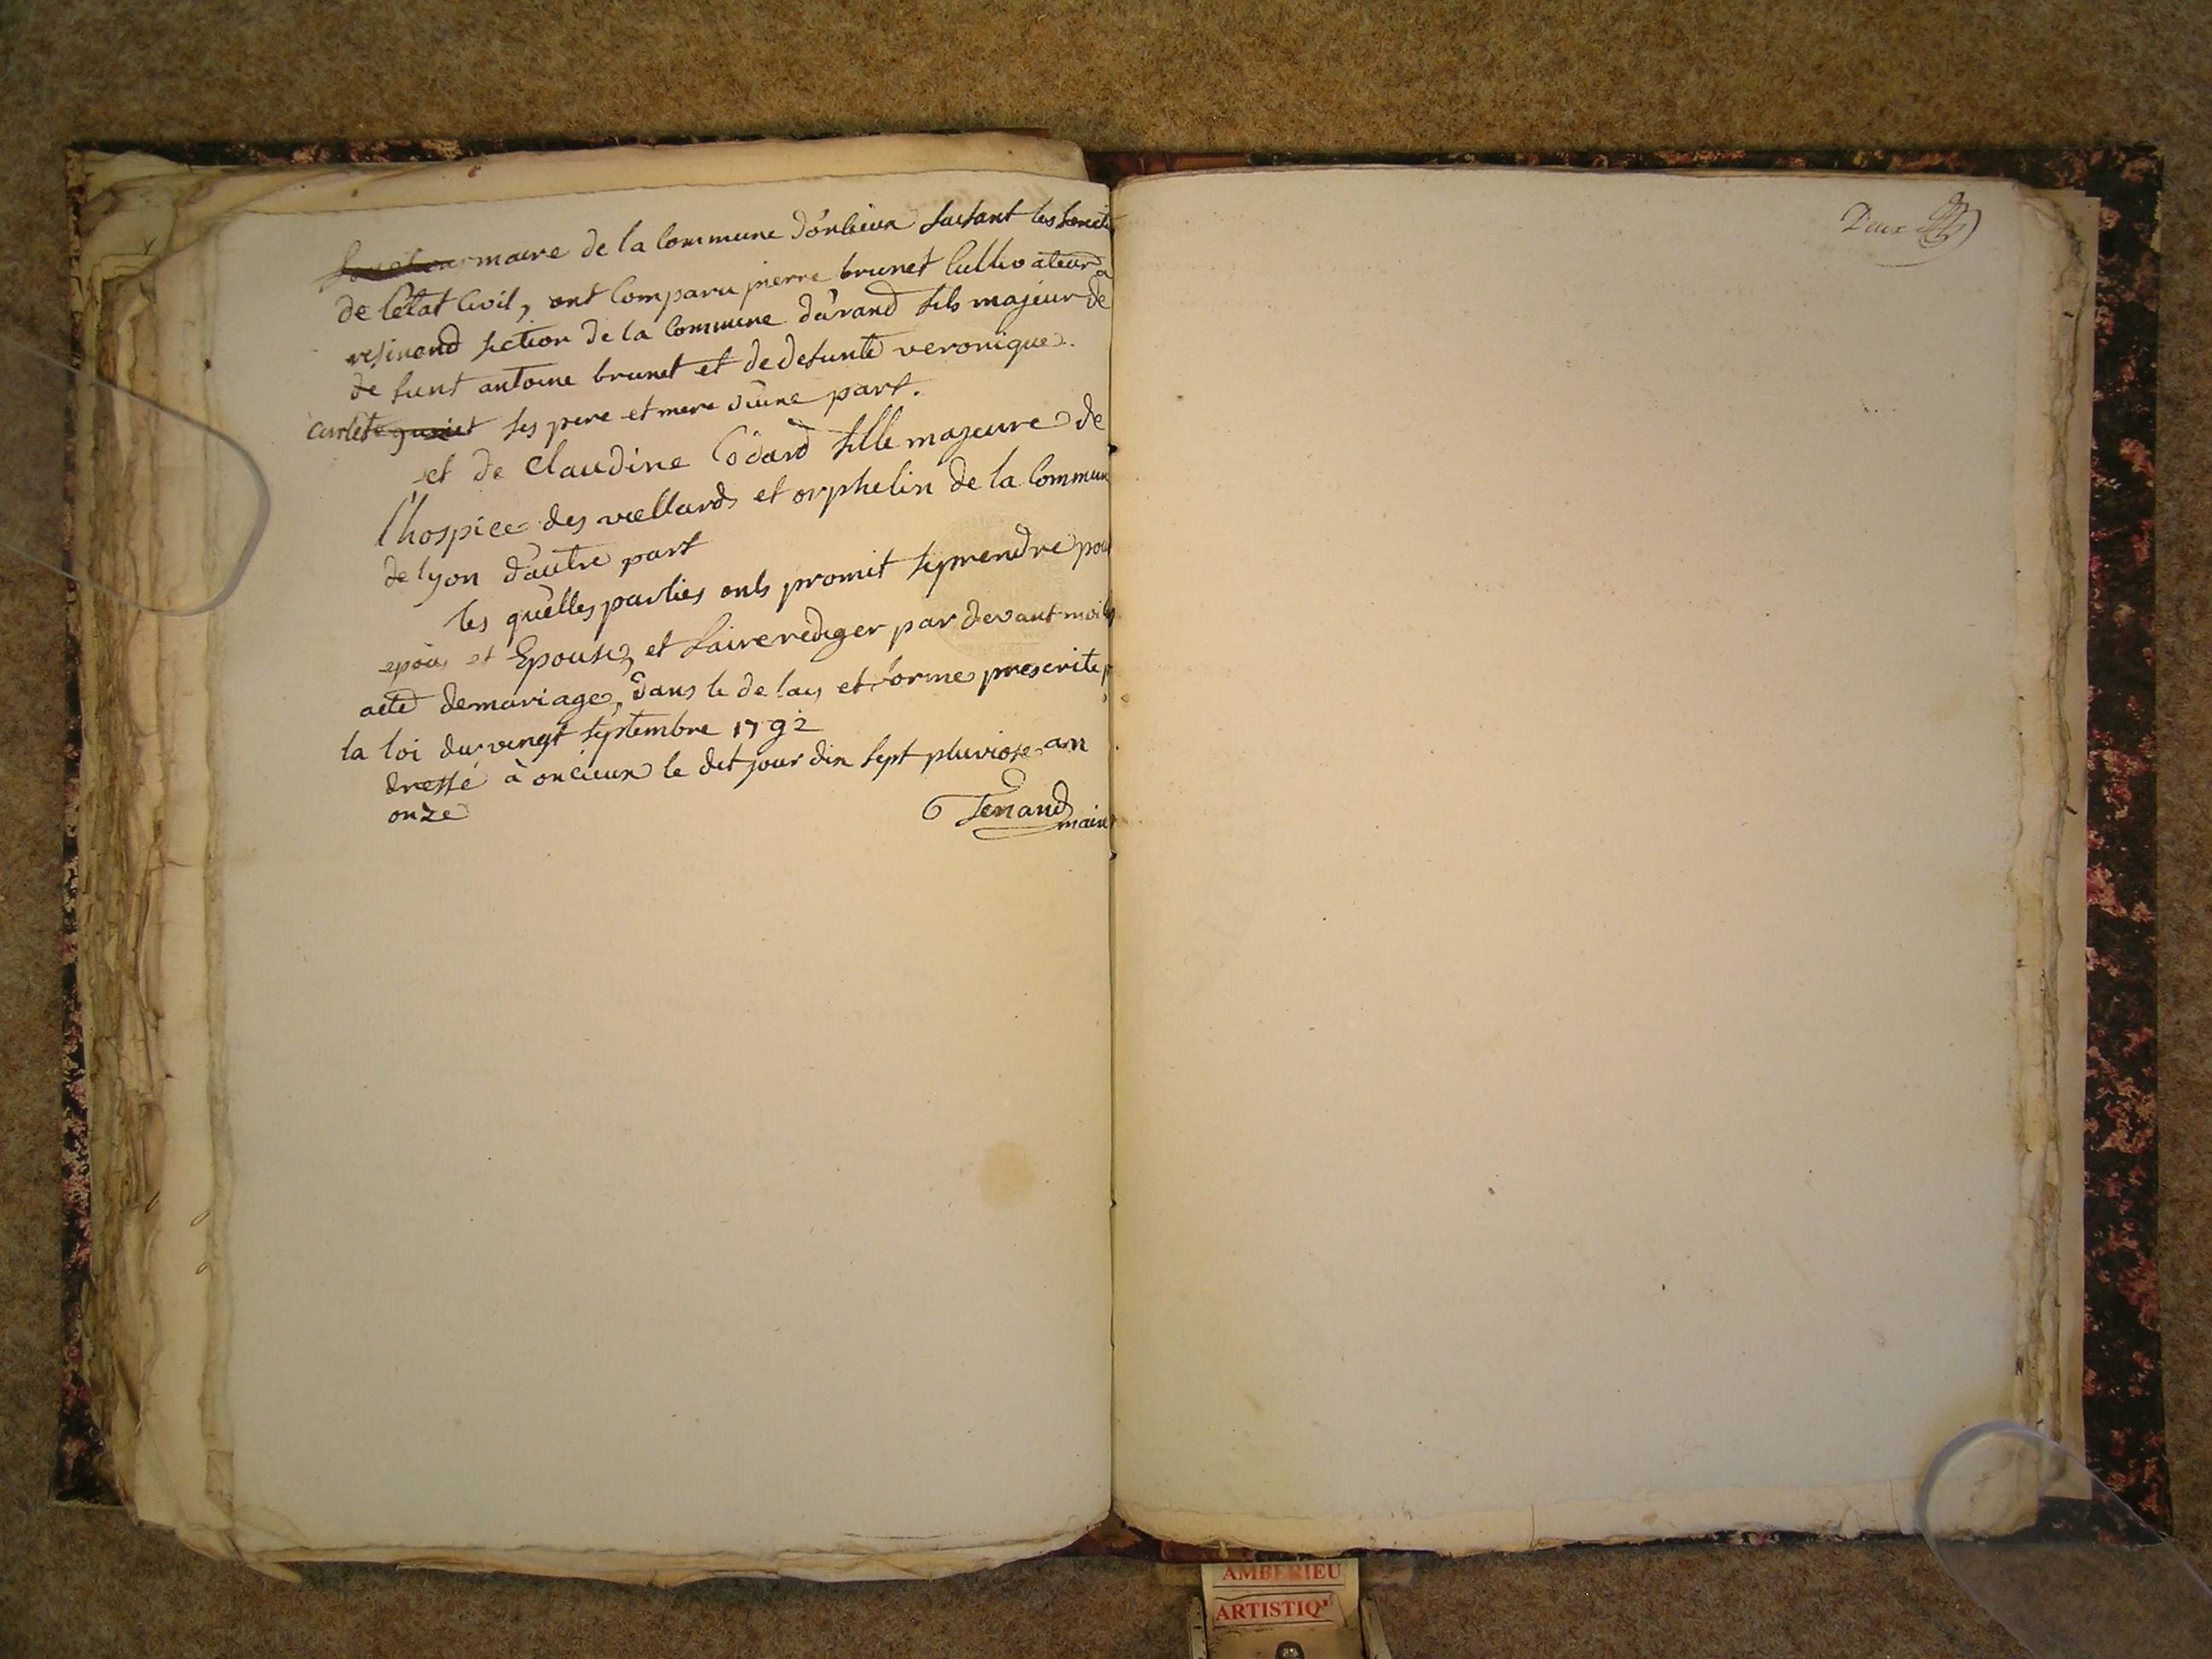 maire de la Commune d'oncieux faisant les foncti
de l'état Civil, ont Comparu pierre brunet Cultivateur a
resinand section de la Commune d'arand fils majeur de
de funt antoine brunet et de defunte veronique
Carlet ses pere et mere d'une part.
et de Claudine Codard fille majeure de
l'hospice des viellards et orphelin de la Commun
de lyon d'autre part
les quelles parties onts promit se prendre pour
epoux et Epouse, et faire rediger par devant moi
acte de mariage, dans le delay et forme prescrite p
la loi du vingt septembre 1792
dressé à oncieux le dit jour dix sept pluviose an
onze
Tenand
maire
Deux
AMBERIEU
ARTISTIQ